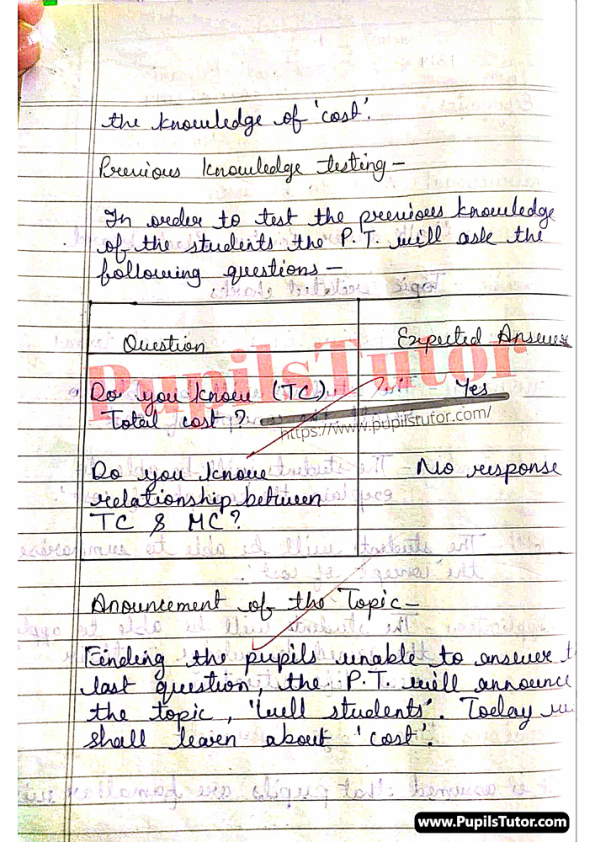 the knowledge of 'cost'.
Previous knowledge testing -
In order to test the previous knowledge
of the students the P.T. will ask the
following questions -
Question
Expected Answer
PupilsTutor
Do you know (TC)
Total cost ?
Yes
https://www.pupilstutor.com/
Do you know
relationship between
TC & MC?
No response
Anouncement of the Topic -
Finding the pupils unable to answer t
last question, the P.T. will announce
the topic, 'Well students'. Today we
shall learn about 'cost'.
www.PupilsTutor.com